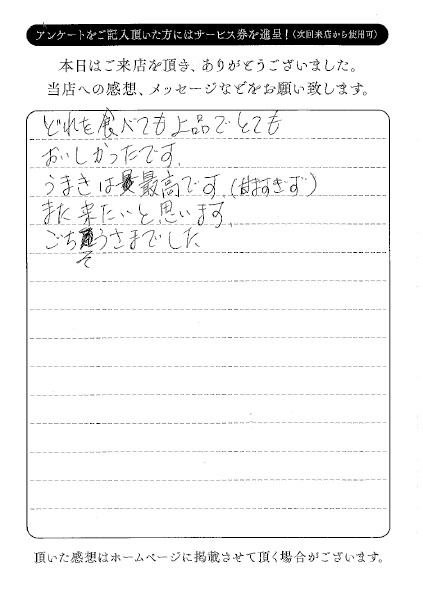 アンケートをご記入頂いた方にはサービス券を進呈！（次回来店から使用可）
本日はご来店を頂き、ありがとうございました。
当店への感想、メッセージなどをお願い致します。
どれを食べても上品でとても
おいしかったです。
うまきは最高です。(甘すぎず)
また来たいと思います。
ごちそうさまでした
頂いた感想はホームページに掲載させて頂く場合がございます。